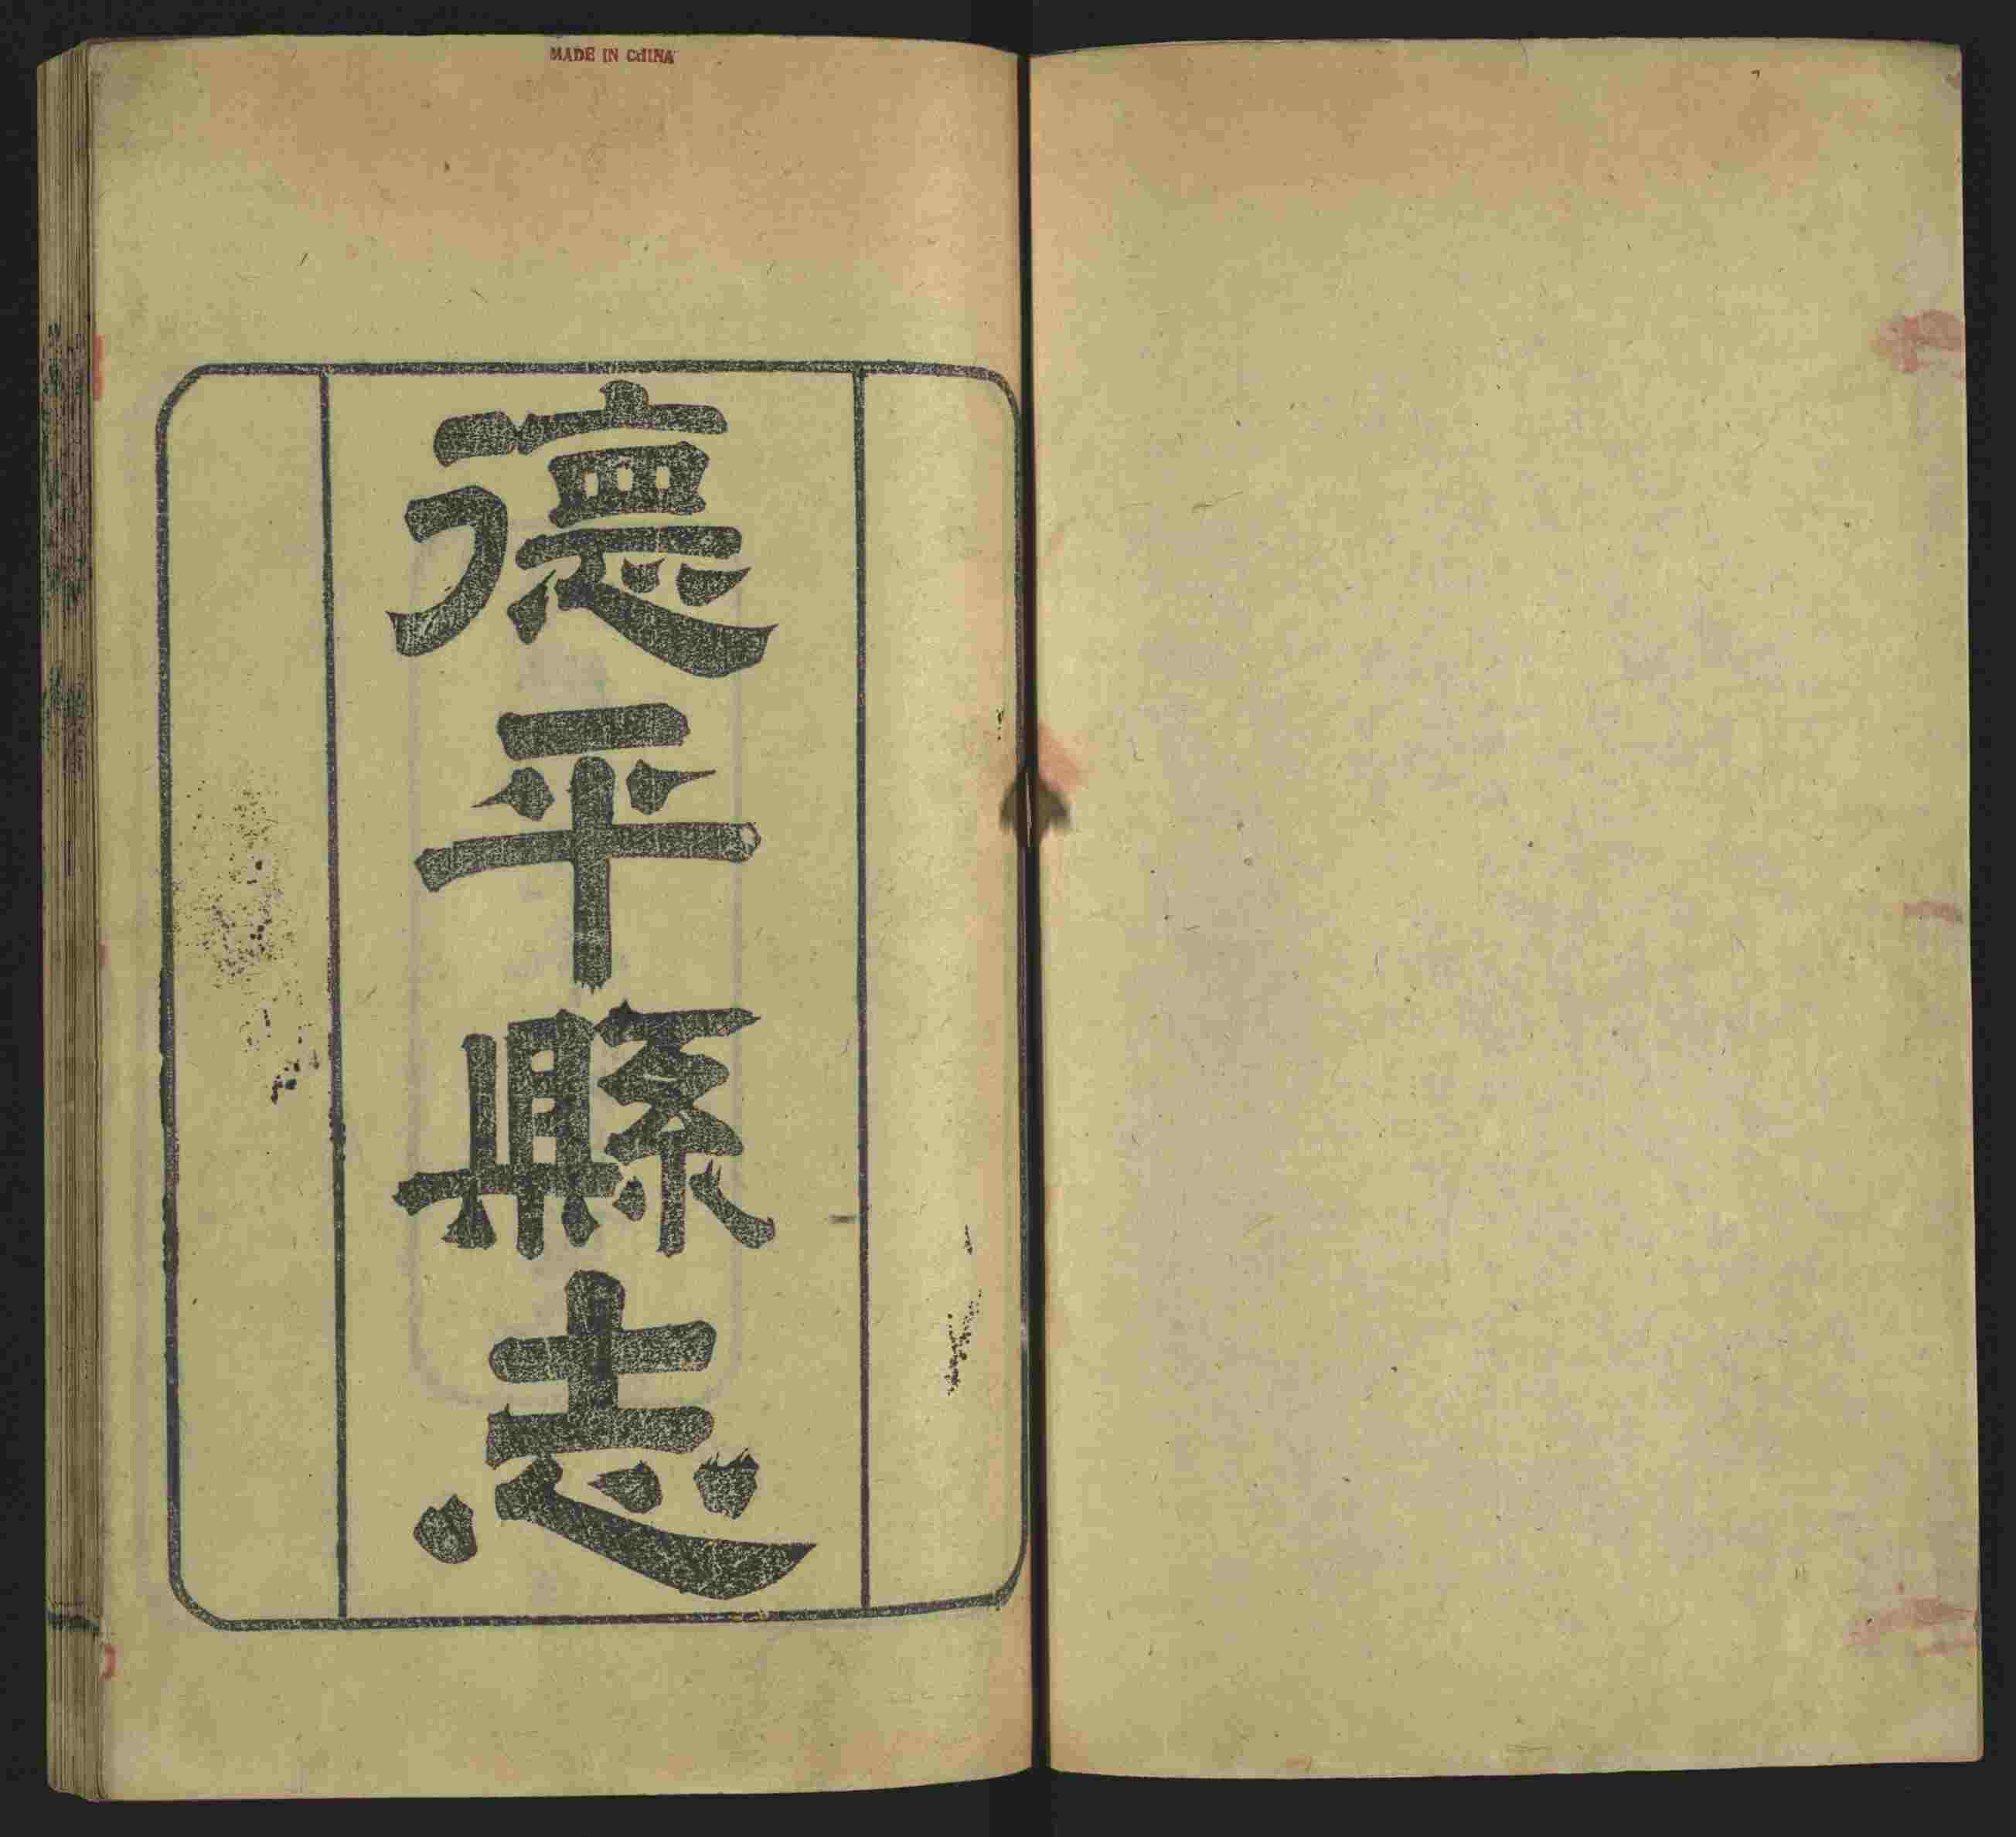 MADE IN CHINA
德平縣志